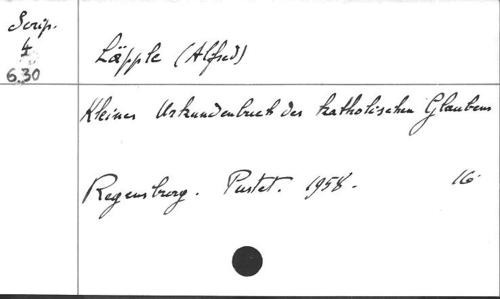 Scrip.
4
6.30
Läpple (Alfred)
Kleines Urkundenbuch des katholischen Glaubens
Regensburg. Pustet. 1958. 16